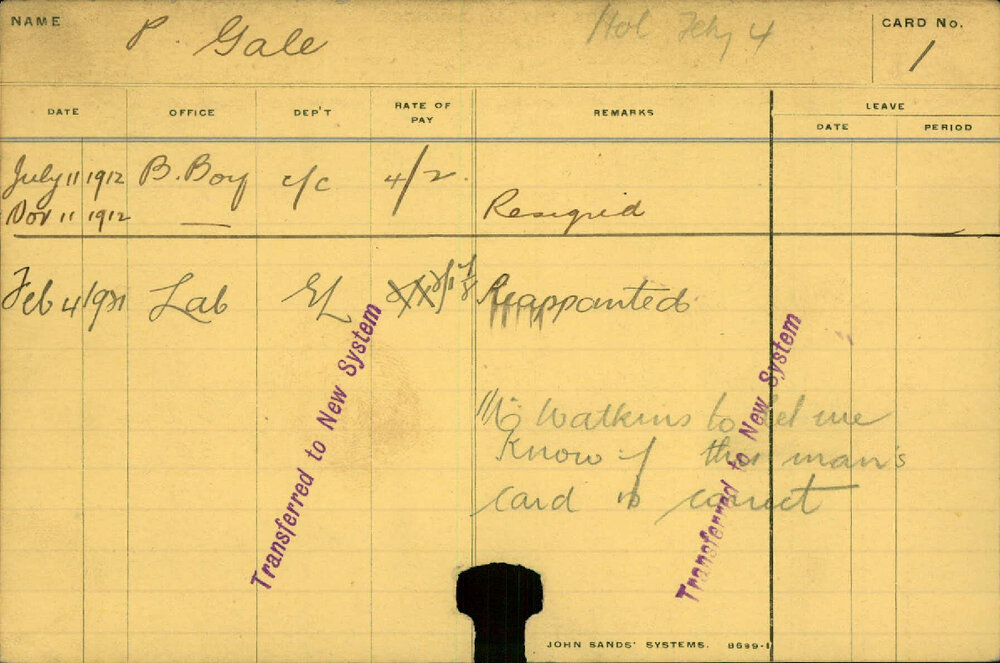 NAME P. Gale Hol Feby 4 CARD No. 1
DATE OFFICE DEP'T RATE OF PAY REMARKS LEAVE
DATE PERIOD
July 11 1912 B. Boy c/c 4/2
Nov 11 1912 — Resigned
Feb 4 1921 Lab EL Reappointed
Transferred to New System
Transferred to New System
Mr Watkins to let me
Know if this man's
card is correct
JOHN SANDS' SYSTEMS. B699-1